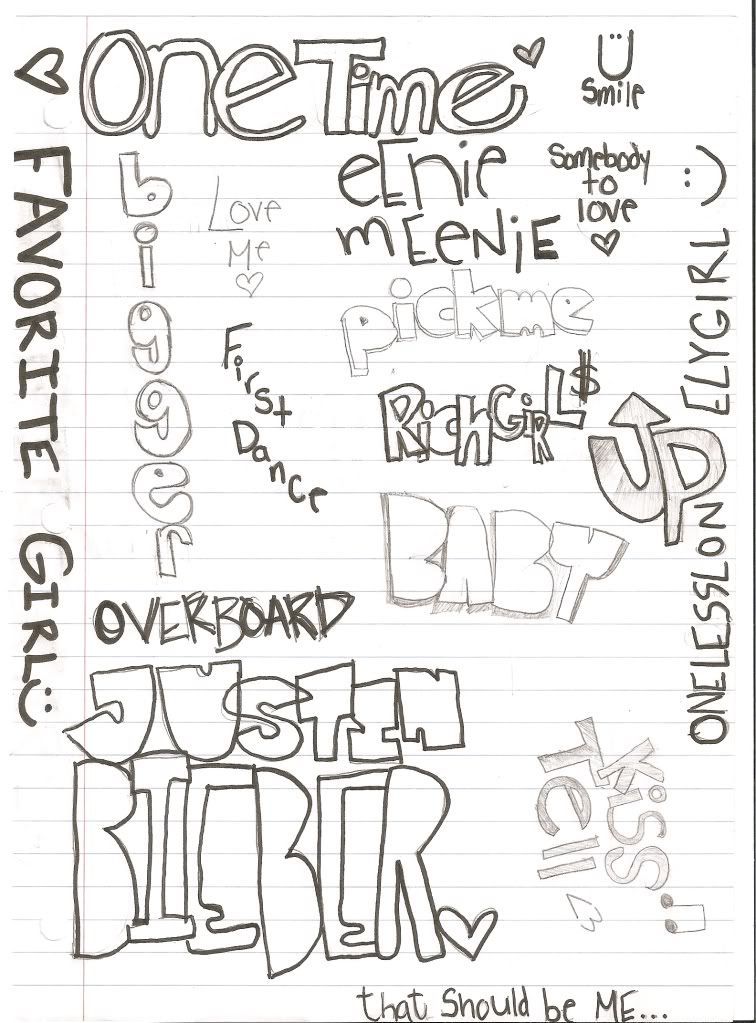 One Time
Ü
Smile
FAVORITE GIRL :)
bigger
Love
Me
eEnie
mEenjE
Somebody
to
love
pickme
First
Dance
RichGirL$
UP
ONELESSLONELYGIRL :)
BABY
OVERBOARD
JUSTIN
BIEBER
Kiss
Tell
<3
that Should be ME...